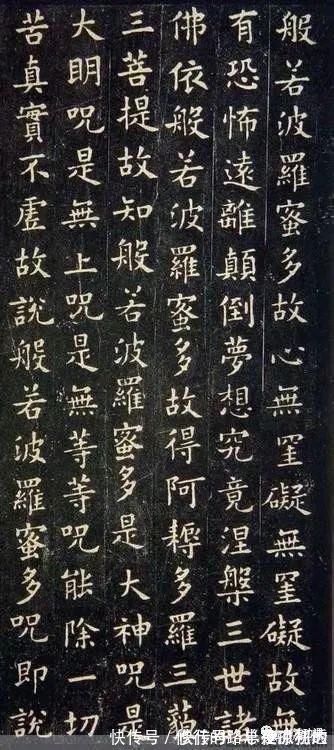 般若波羅蜜多故心無罣礙無罣礙故無
有恐怖遠離顛倒夢想究竟涅槃三世諸
佛依般若波羅蜜多故得阿耨多羅三藐
三菩提故知般若波羅蜜多是大神呪是
大明呪是無上呪是無等等呪能除一切
苦真實不虛故說般若波羅蜜多呪即說
快传号